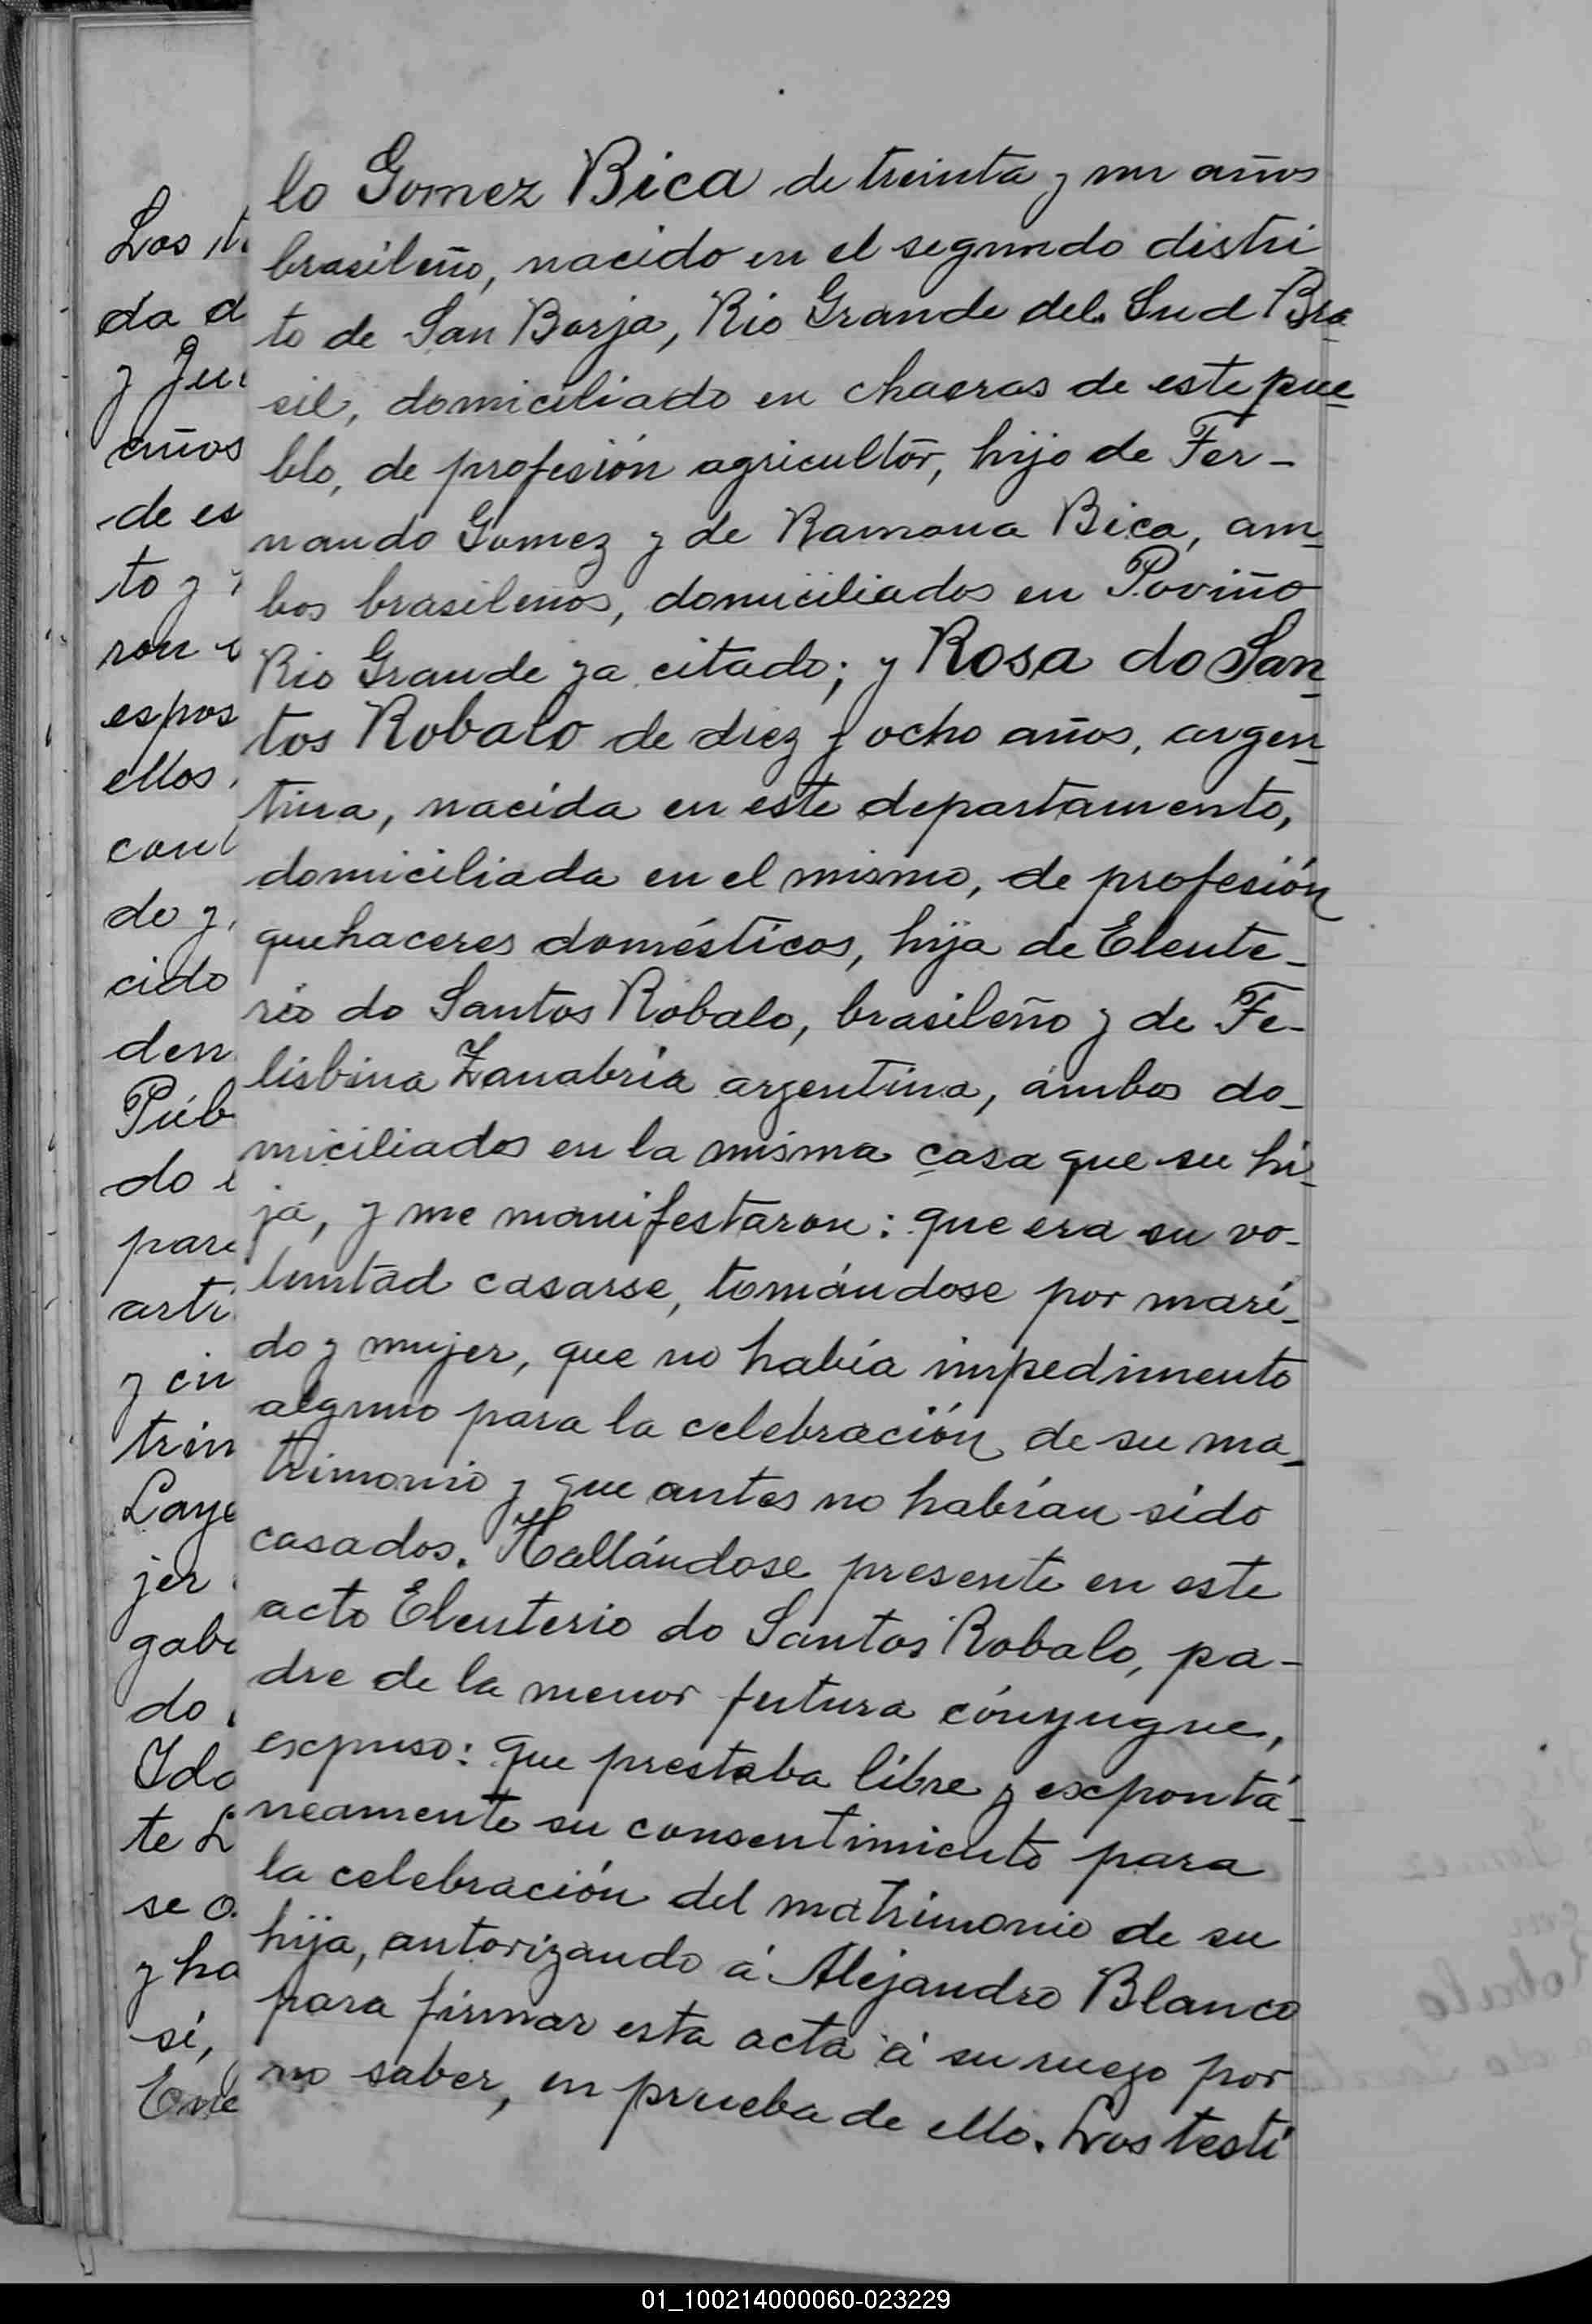 lo Gomez Bica de treinta y un años
brasileño, nacido en el segundo distri
to de San Borja, Rio Grande del Sud Bra_
sil, domiciliado en chacras de este pue_
blo, de profesión agricultor, hijo de Fer-
nando Gomez y de Ramona Bica, am_
bos brasileños, domiciliados en Poviño
Rio Grande ya citado; y Rosa do San_
tos Robalo de diez y ocho años, argen_
tina, nacida en este departamento,
domiciliada en el mismo, de profesión
quehaceres domésticos, hija de Eleute_
rio do Santos Robalo, brasileño y de Fe-
lisbina Zanabria argentina, ambos do_
miciliados en la misma casa que su hi_
ja, y me manifestaron: que era su vo-
luntad casarse, tomándose por mari_
do y mujer, que no había impedimento
alguno para la celebración de su ma_
trimonio y que antes no habían sido
casados. Hallándose presente en este
acto Eleuterio do Santos Robalo, pa-
dre de la menor futura cónyugue,
expuso: que prestaba libre y expontá_
neamente su consentimiento para
la celebración del matrimonio de su
hija, autorizando á Alejandro Blanco
para firmar esta acta á su ruego por
no saber, en prueba de ello. Los testi
Los
da d
y
años
de es
to y
ron
espos
ellos
do y
cido
den
Púb
do
par
arti
y cin
trim
Laye
jer
gab
do
Ido
te L
se o
y ha
sí,
Ene
Robalo
01_100214000060-023229